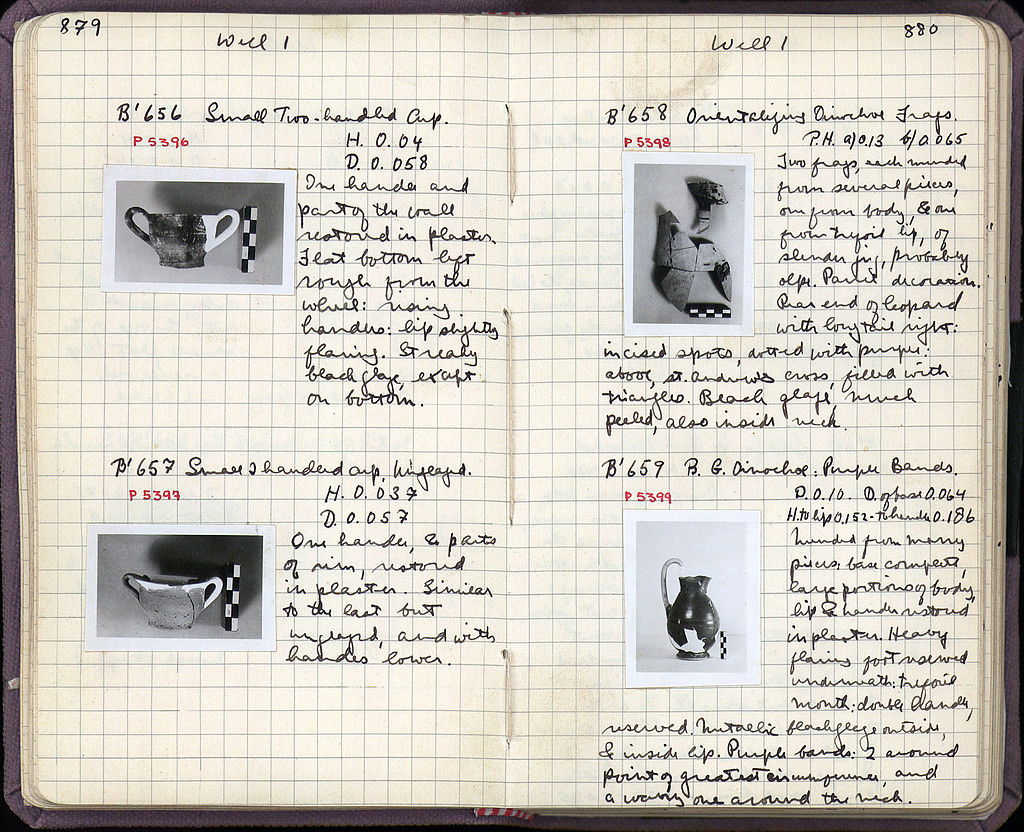 879
Well 1
B'656 Small Two-handled Cup.
P 5396
H. 0.04
D. 0.058
One handle and
part of the wall
restored in plaster.
Flat bottom left
rough from the
wheel: rising
handles: lip slightly
flaring. Streaky
black glaze, except
on bottom.
B'657 Small 2 handled cup, Unglazed.
P 5397
H. 0.037
D. 0.057
One handle, & parts
of rim, restored
in plaster. Similar
to the last but
unglazed, and with
handles lower.
880
Well 1
B'658 Orientalizing Oinochoe Frags.
P 5398
P.H. a) 0.13 b) 0.065
Two frags, each mended
from several pieces,
one from body, & one
from trefoil lip, of
slender jug, probably
olpe. Part decoration.
Rear end of leopard
with long tail right:
incised spots, dotted with purple:
above, St. Andrew's cross, filled with
triangles. Black glaze, much
peeled, also inside neck.
B'659 B. G. Oinochoe: Purple Bands.
P 5399
D. 0.10. D. of base 0.064
H. to lip 0.152 - to handle 0.186
Mended from many
pieces; base complete,
large portions of body,
lip & handle restored
in plaster. Heavy
flaring foot reserved
underneath: trefoil
mouth: double handle,
reserved. Metallic black glaze outside,
& inside lip. Purple bands: 2 around
point of greatest circumference, and
a wavy one around the neck.